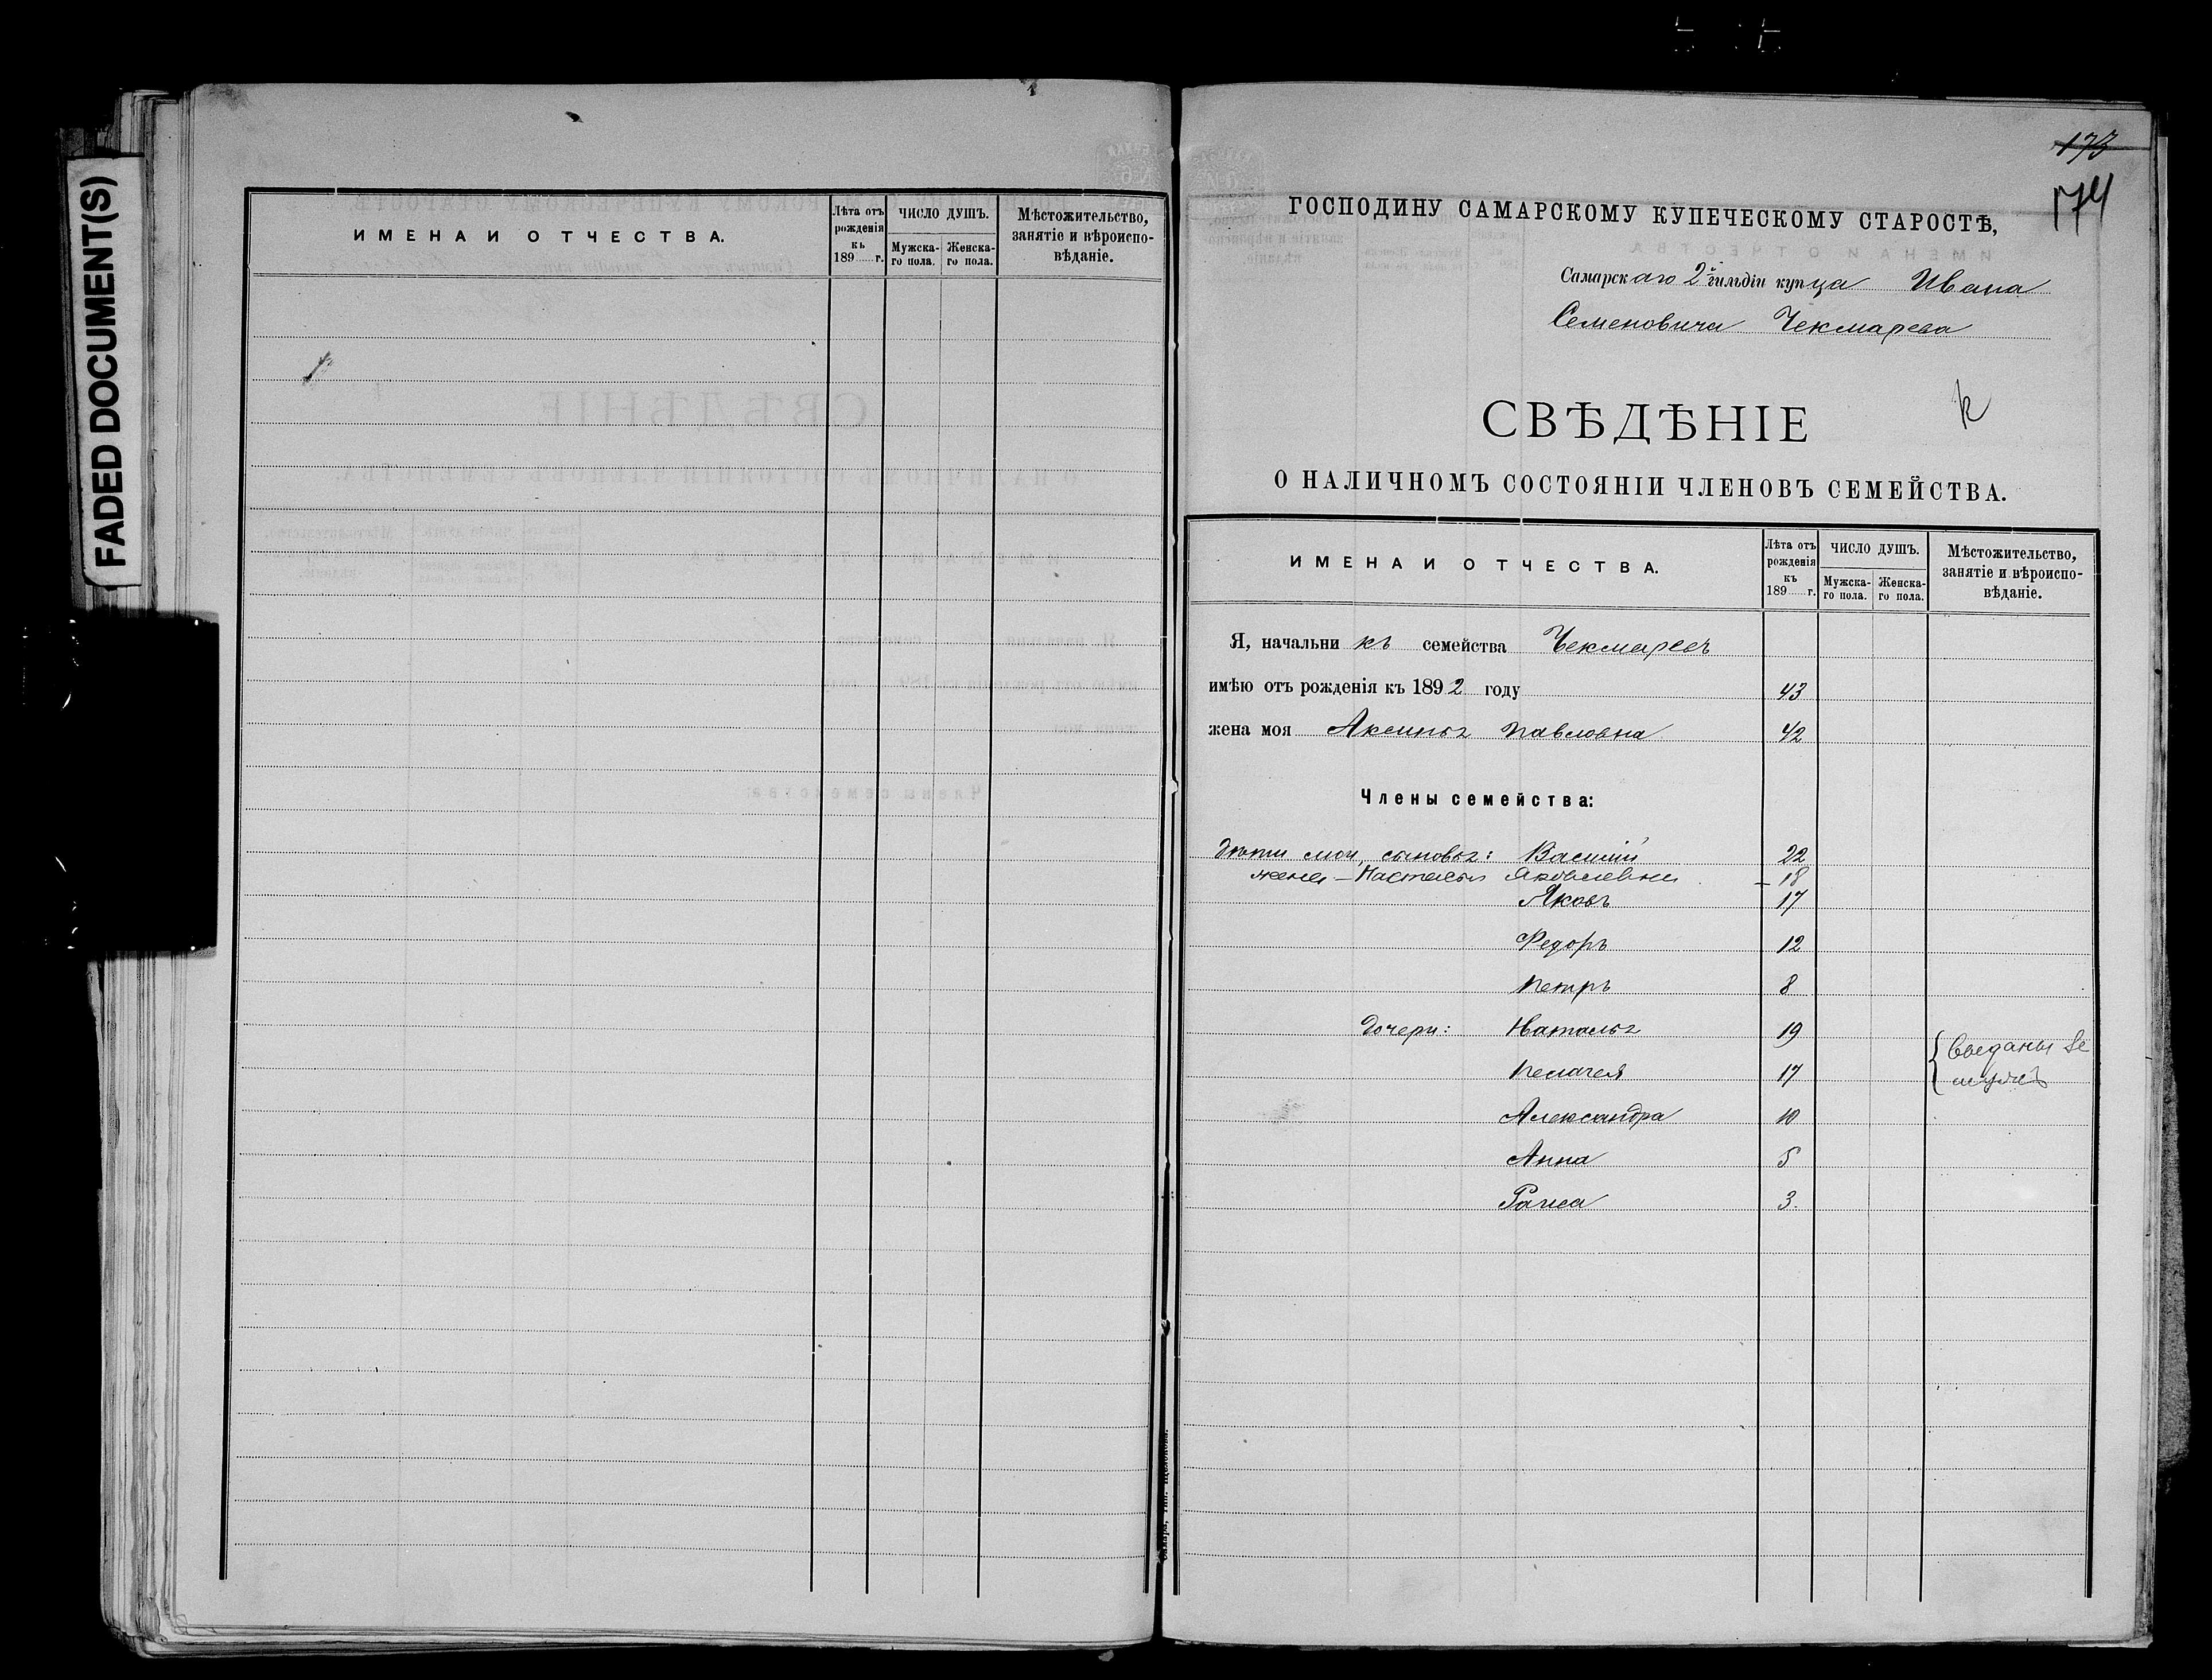 FADED DOCUMENT(S)
ИМЕНА И ОТЧЕСТВА.
Лѣта отъ рожденія къ 189 г.
ЧИСЛО ДУШЪ.
Мужска-го пола.
Женска-го пола.
Мѣстожительство, занятіе и вѣроиспо-вѣданіе.
173
174
ГОСПОДИНУ САМАРСКОМУ КУПЕЧЕСКОМУ СТАРОСТѢ,
Самарскаго 2й гильдіи купца Ивана
Семеновича Чекмарева
СВѢДѢНІЕ
О НАЛИЧНОМЪ СОСТОЯНІИ ЧЛЕНОВЪ СЕМЕЙСТВА.
ИМЕНА И ОТЧЕСТВА.
Лѣта отъ рожденія къ 189 г.
ЧИСЛО ДУШЪ.
Мужска-го пола.
Женска-го пола.
Мѣстожительство, занятіе и вѣроиспо-вѣданіе.
Я, начальникъ семейства Чекмаревъ
имѣю отъ рожденія къ 1892 году 43
жена моя Аксинья Павловна 42
Члены семейства:
дѣти мои, сыновья: Василій 22
жена – Настасья Яковлевна – 18
Яковъ 17
Федоръ 12
Петръ 8
дочери: Наталья 19
Пелагея 17
Александра 10
Анна 5
Раиса 3.
Самара, Тип. Щелокова.